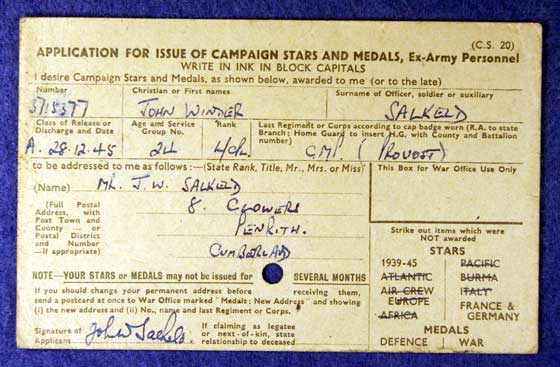 (C.S. 20)
APPLICATION FOR ISSUE OF CAMPAIGN STARS AND MEDALS, Ex-Army Personnel
WRITE IN INK IN BLOCK CAPITALS
I desire Campaign Stars and Medals, as shown below, awarded to me (or to the late)
Number Christian or First names Surname of Officer, soldier or auxiliary
JOHN WINDER SALKELD
Class of Release or Discharge and Date
Age and Service Group No.
Rank
Last Regiment or Corps according to cap badge worn (R.A. to state Branch; Home Guard to insert H.G. with County and Battalion number)
A. 28.12.45 24 L/CPL. C.M.P. (PROVOST)
to be addressed to me as follows:—(State Rank, Title, Mr., Mrs. or Miss)
(Name) MR. J. W. SALKELD
(Full Postal Address, with Post Town and County — or Postal District and Number — if appropriate)
8. CLOWERS
PENRITH.
CUMBERLAND
This Box for War Office Use Only
NOTE—YOUR STARS or MEDALS may not be issued for SEVERAL MONTHS
If you should change your permanent address before receiving them,
send a postcard at once to War Office marked "Medals: New Address" and showing
(i) the new address and (ii) No., name and last Regiment or Corps.
Signature of Applicant
If claiming as legatee or next-of-kin, state relationship to deceased
Strike out items which were NOT awarded
STARS
1939-45 PACIFIC
ATLANTIC BURMA
AIR CREW EUROPE ITALY
AFRICA FRANCE & GERMANY
MEDALS
DEFENCE WAR